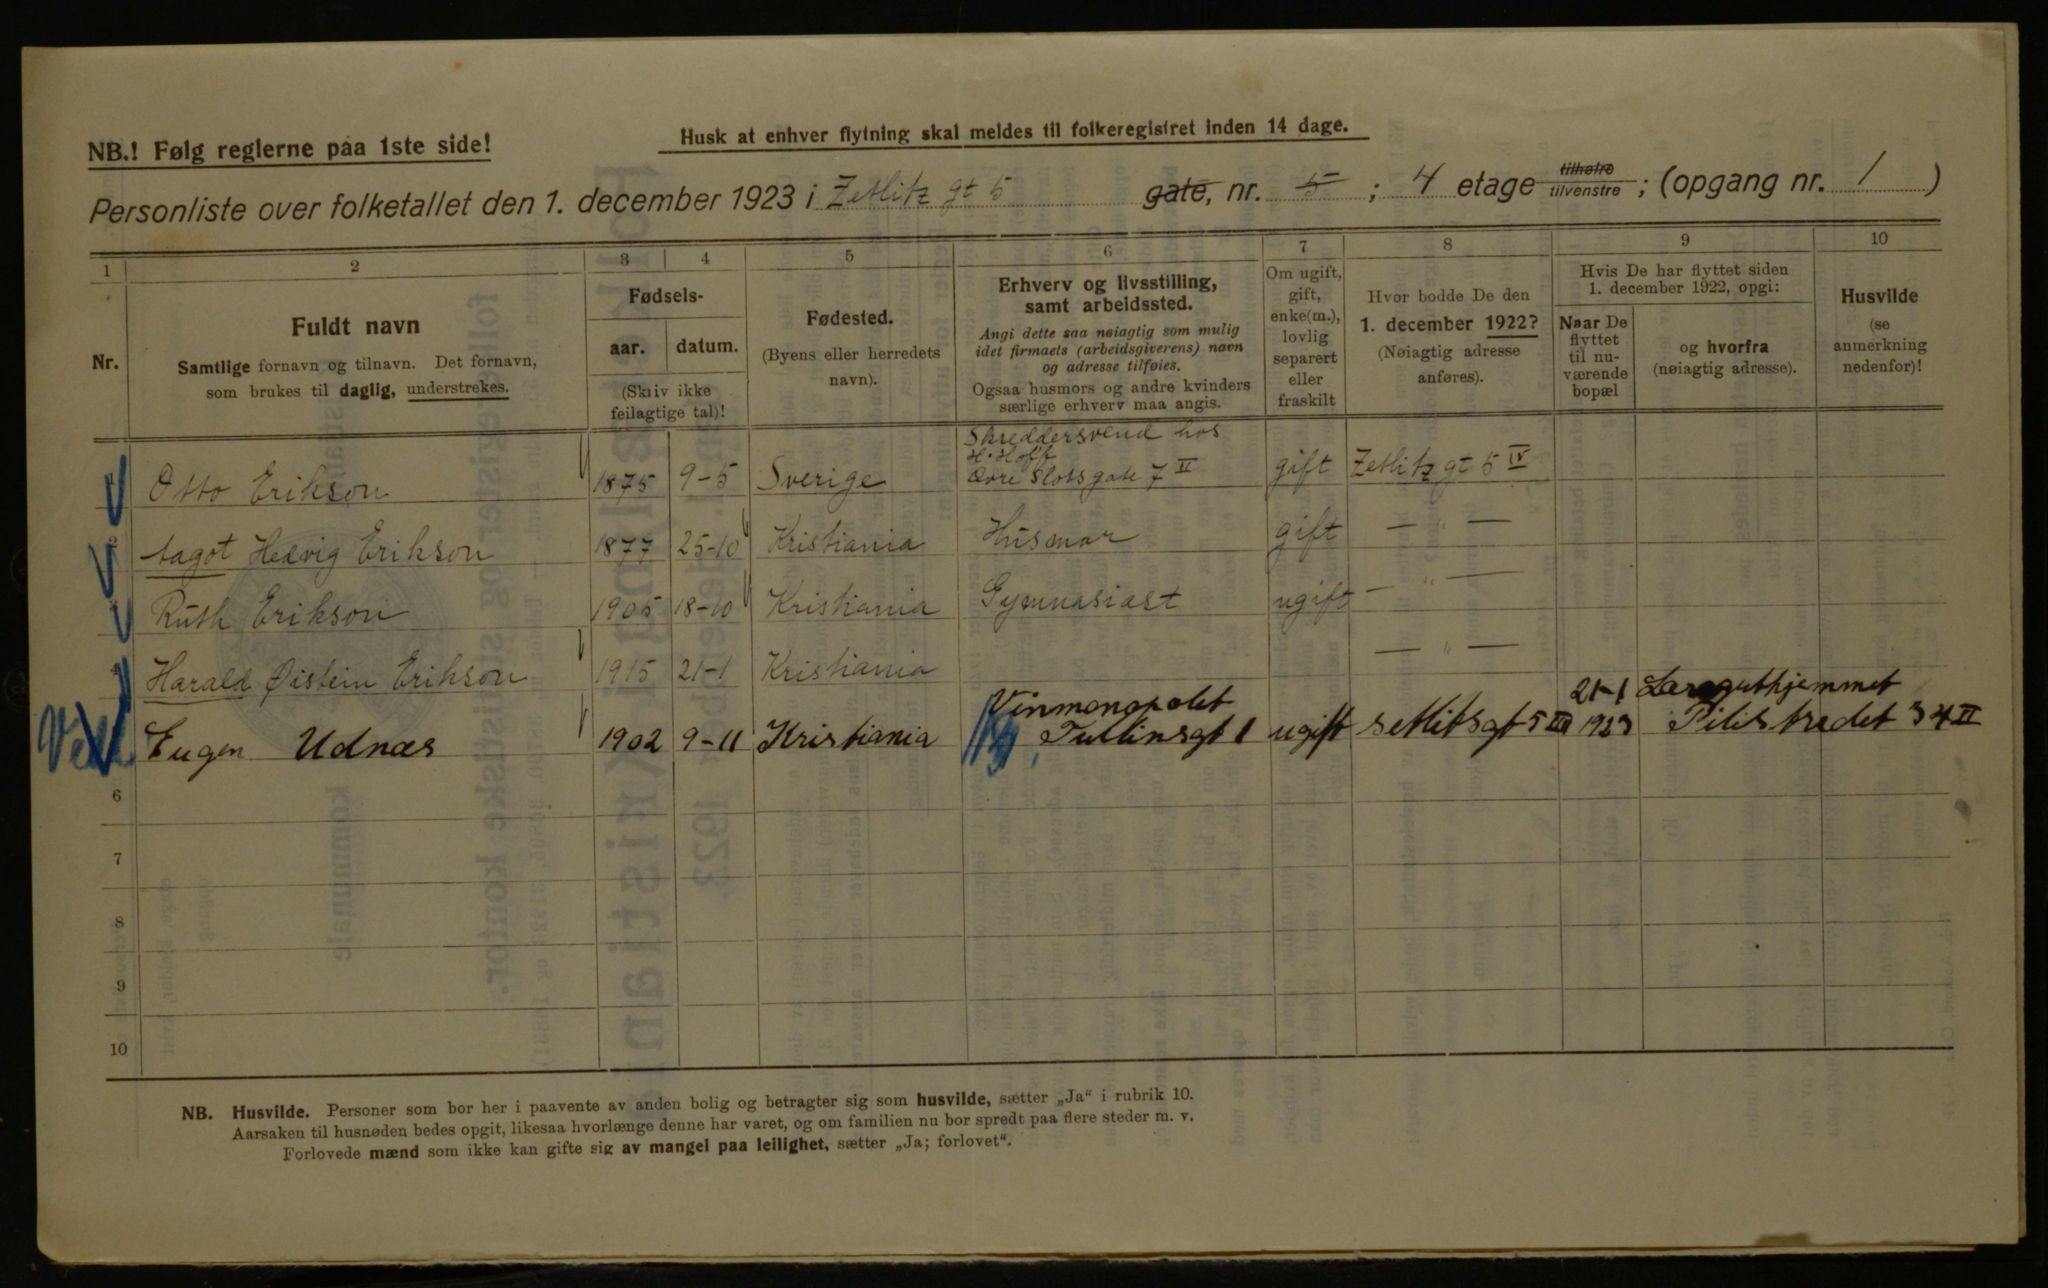 NB.! Følg reglerne paa 1ste side!
Husk at enhver flytning skal meldes til folkeregistret inden 14 dage.
Personliste over folketallet den 1. december 1923 i Zetlitz gt 5 gate, nr. 5 ; 4 etage tilhøire tilvenstre ; (opgang nr. 1 )
1 2 3 4 5 6 7 8 9 10
Nr.
Fuldt navn
Samtlige fornavn og tilnavn. Det fornavn,
som brukes til daglig, understrekes.
Fødsels-
aar. datum.
(Skriv ikke
feilagtige tal)!
Fødested.
(Byens eller herredets
navn).
Erhverv og livsstilling,
samt arbeidssted.
Angi dette saa nøiagtig som mulig
idet firmaets (arbeidsgiverens) navn
og adresse tilføies.
Ogsaa husmors og andre kvinders
særlige erhverv maa angis.
Om ugift,
gift,
enke(m.),
lovlig
separert
eller
fraskilt
Hvor bodde De den
1. december 1922?
(Nøiagtig adresse
anføres).
Hvis De har flyttet siden
1. december 1922, opgi:
Naar De
flyttet
til nu-
værende
bopæl
og hvorfra
(nøiagtig adresse).
Husvilde
(se
anmerkning
nedenfor)!
Skreddersvend hos
H. Hoff
1 Otto Erikson 1875 9-5 Sverige Øvre Slotsgate 7 II gift Zetlitz gt 5 IV
2 Aagot Hedvig Erikson 1877 25-10 Kristiania Husmor gift — " —
3 Ruth Erikson 1905 18-10 Kristiania Gymnasiast ugift — " —
4 Harald Øistein Erikson 1915 21-1 Kristiania — " —
Vinmonopolet 21-1
Eugen Udnæs 1902 9-11 Kristiania Tullinsgt 1 ugift setlitsgt 5 III 1923 Pilestredet 34 II
6
7
8
9
10
NB. Husvilde. Personer som bor her i paavente av anden bolig og betragter sig som husvilde, sætter „Ja“ i rubrik 10.
Aarsaken til husnøden bedes opgit, likesaa hvorlænge denne har varet, og om familien nu bor spredt paa flere steder m. v.
Forlovede mænd som ikke kan gifte sig av mangel paa leilighet, sætter „Ja; forlovet“.